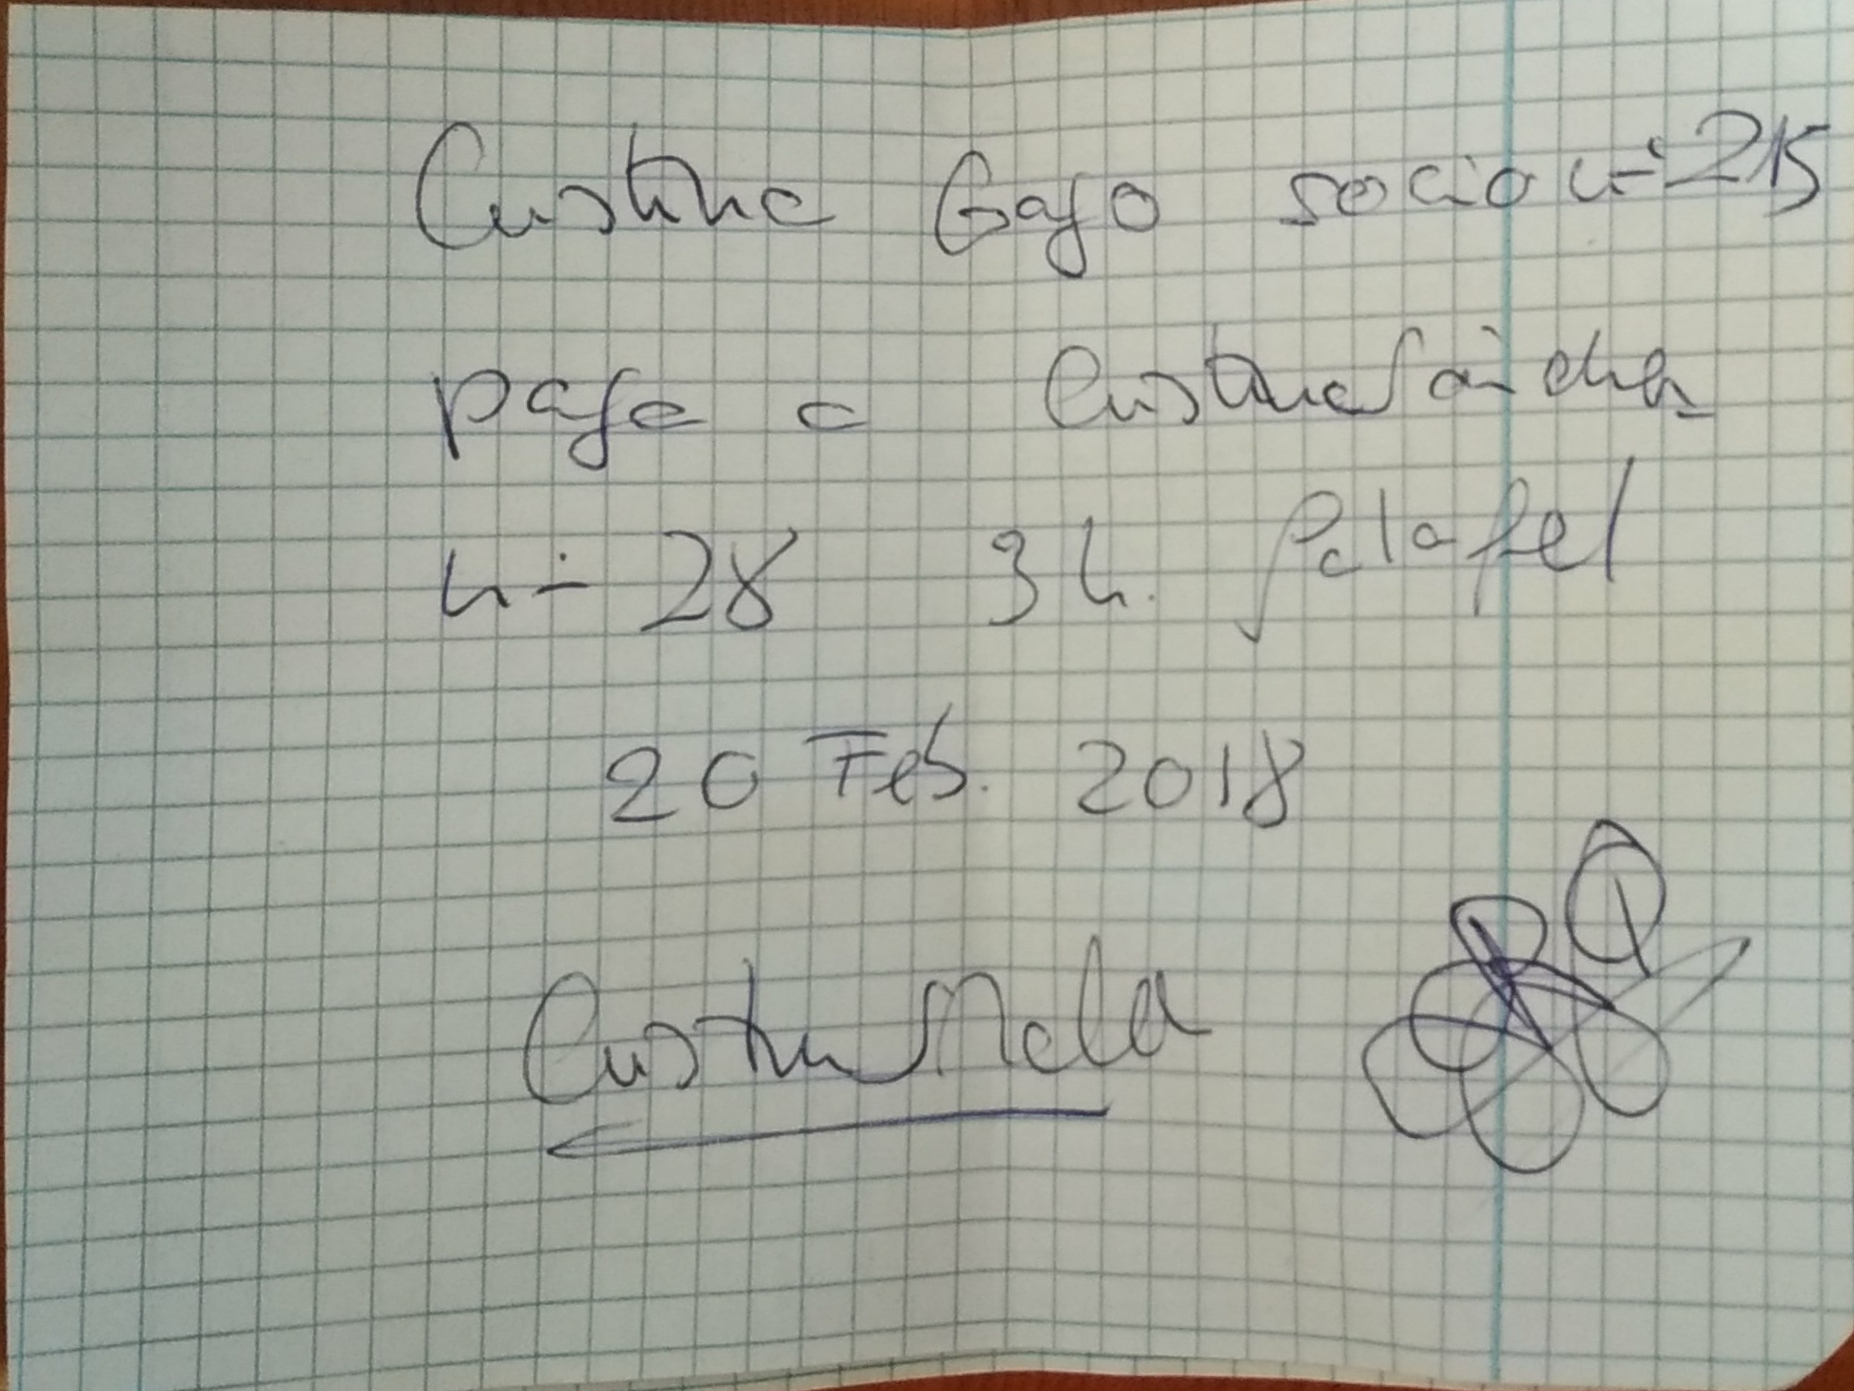 Cristina Gago socio nº 215
paga a Cristina Sánchez
nº 28 3 h.
20 Feb. 2018
Cristina